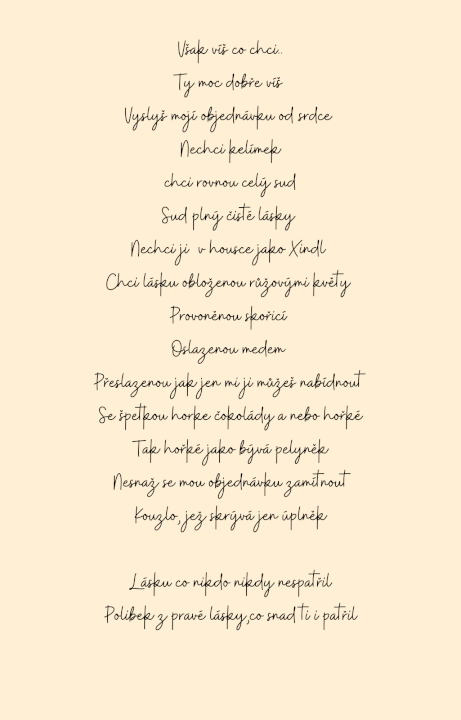 Však víš co chci..
Ty moc dobře víš
Vyslyš mojí objednávku od srdce
Nechci kelímek
chci rovnou celý sud
Sud plný čisté lásky
Nechci ji v housce jako Xindl
Chci lásku obloženou růžovými květy
Provoněnou skořicí
Oslazenou medem
Přeslazenou jak jen mi ji můžeš nabídnout
Se špetkou horke čokolády a nebo hořké
Tak hořké jako bývá pelyněk
Nesnaž se mou objednávku zamítnout
Kouzlo, jež skrývá jen úplněk

Lásku co nikdo nikdy nespatřil
Polibek z pravé lásky,co snad ti i patřil